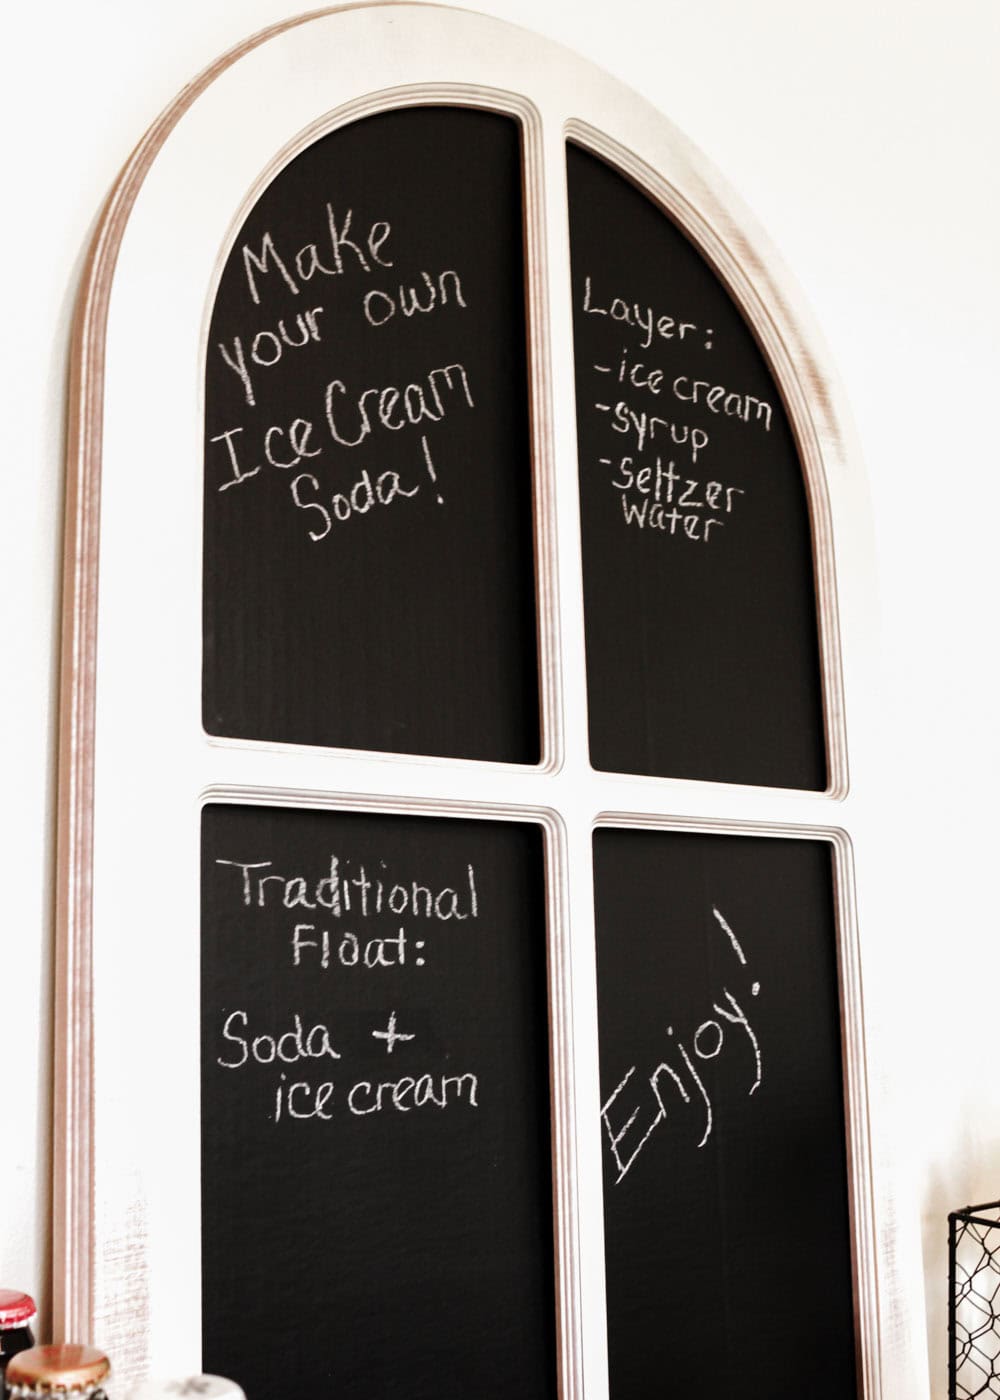 Make
your own
Ice Cream
Soda!
Layer:
-ice cream
-syrup
-Seltzer
Water
Traditional
Float:
Soda +
ice cream
Enjoy!